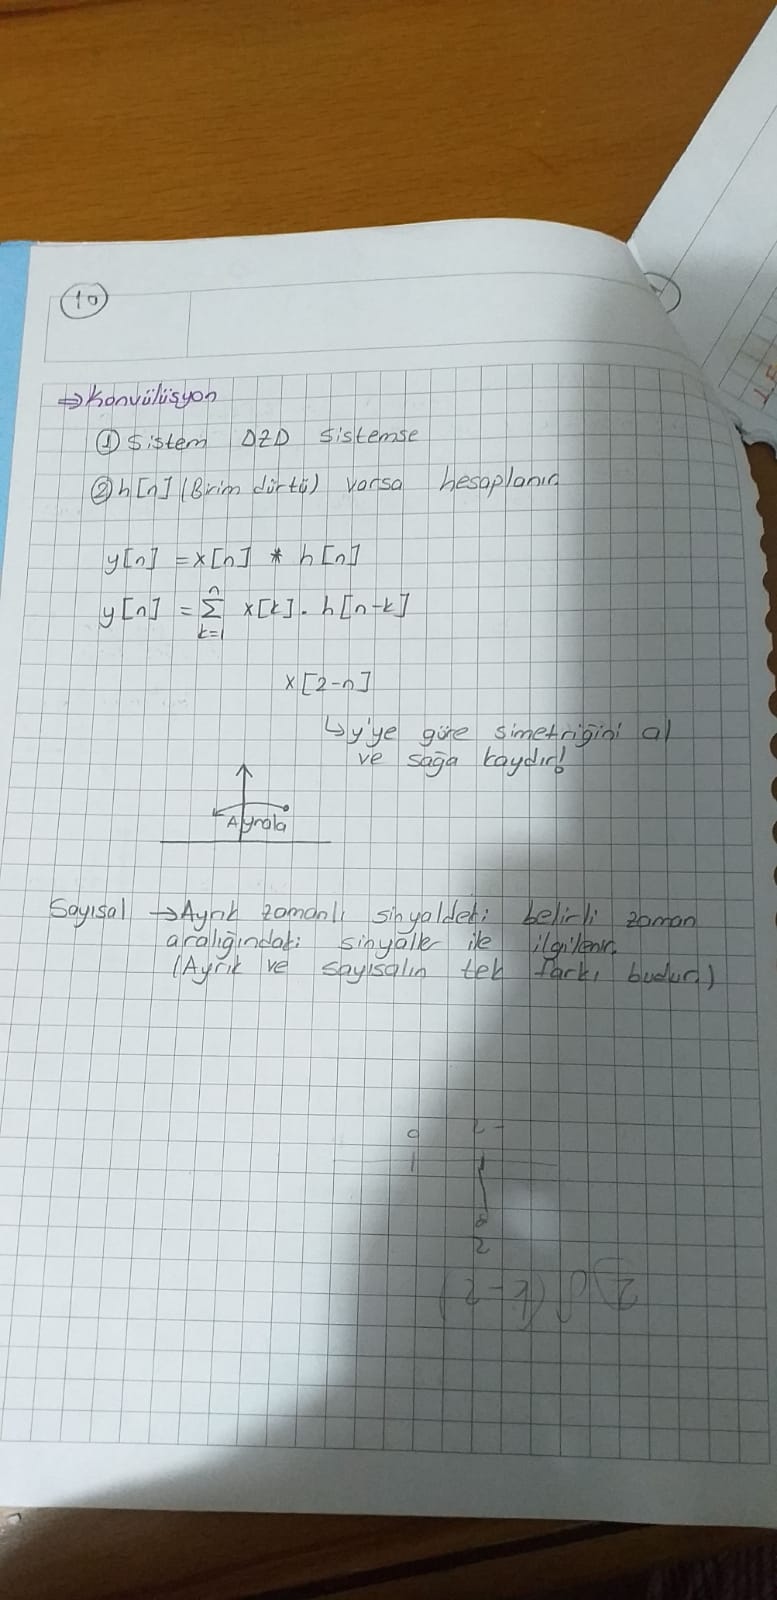 10
⇒ Konvülüsyon
① Sistem DZD sistemse
② h[n] (Birim dürtü) varsa hesaplanır
y[n] = x[n] * h[n]
y[n] = n∑k=1 x[k] . h[n-k]
x[2-n]
↳ y'ye göre simetriğini al
ve sağa kaydır!
Aynala
Sayısal → Ayrık zamanlı sinyaldeki belirli zaman
aralığındaki sinyaller ile ilgilenir.
(Ayrık ve sayısalın tek farkı budur.)